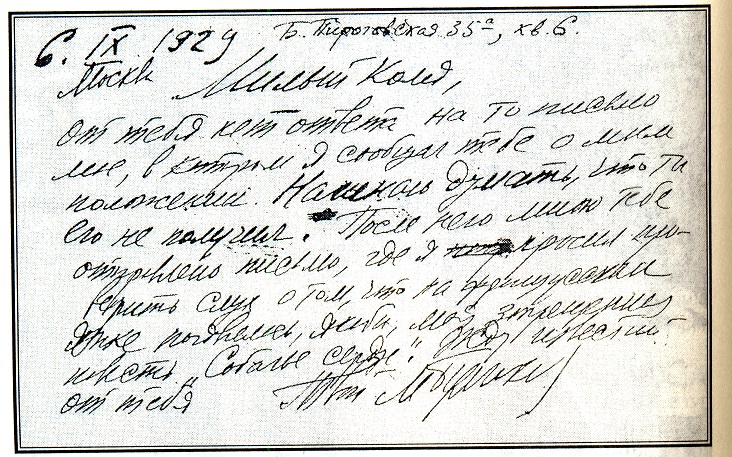 6. IX 1929 Б. Пироговская 35а, кв. 6.
Москва Милый Коля,
от тебя нет ответа на то письмо
мое, в котором я сообщал тебе о моем
положении. Начинаю думать, что ты
его не получил. После него мною тебе
отправлено письмо, где я просил про-
верить слух о том, что на французском
языке появилась, якобы, моя
повесть „Собачье сердце". Жду известий
от тебя Твой Михаил